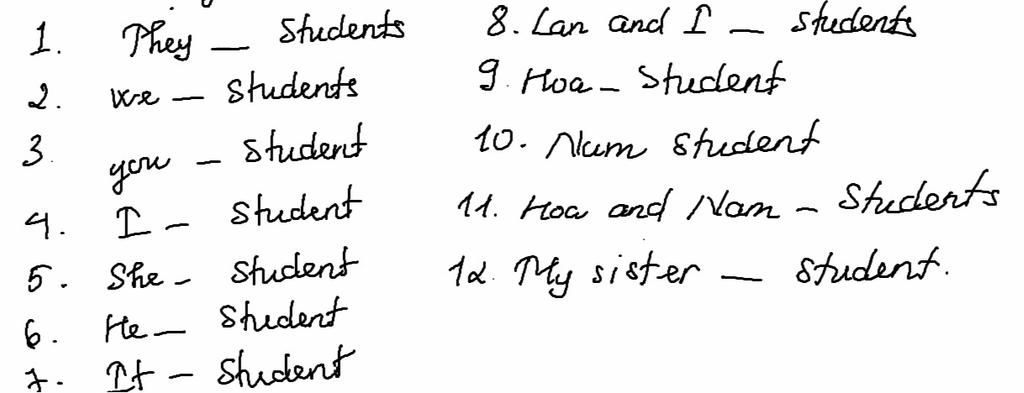 1. They _ Students
2. We _ Students
3. you _ Student
4. I _ Student
5. She _ Student
6. He _ Student
7. It _ Student
8. Lan and I _ students
9. Hoa _ Student
10. Nam student
11. Hoa and Nam _ Students
12. My sister _ student.